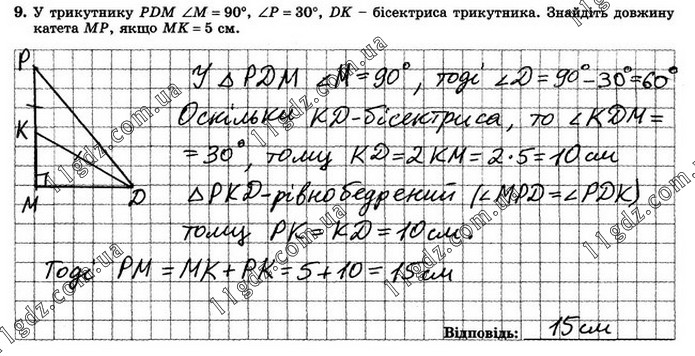 9. У трикутнику PDM ∠M = 90°, ∠P = 30°, DK – бісектриса трикутника. Знайдіть довжину
катета MP, якщо MK = 5 см.
У △ PDM ∠M = 90°, тоді ∠D = 90° – 30° = 60°
Оскільки KD-бісектриса, то ∠KDM =
= 30°, тому KD = 2 KM = 2 · 5 = 10 см
△ PKD-рівнобедрений (∠MPD = ∠PDK)
тому PK = KD = 10 см.
Тоді PM = MK + PK = 5 + 10 = 15 см
Відповідь: 15 см
P
K
M
D
11gdz.com.ua
11gdz.com.ua
11gdz.com.ua
11gdz.com.ua
11gdz.com.ua